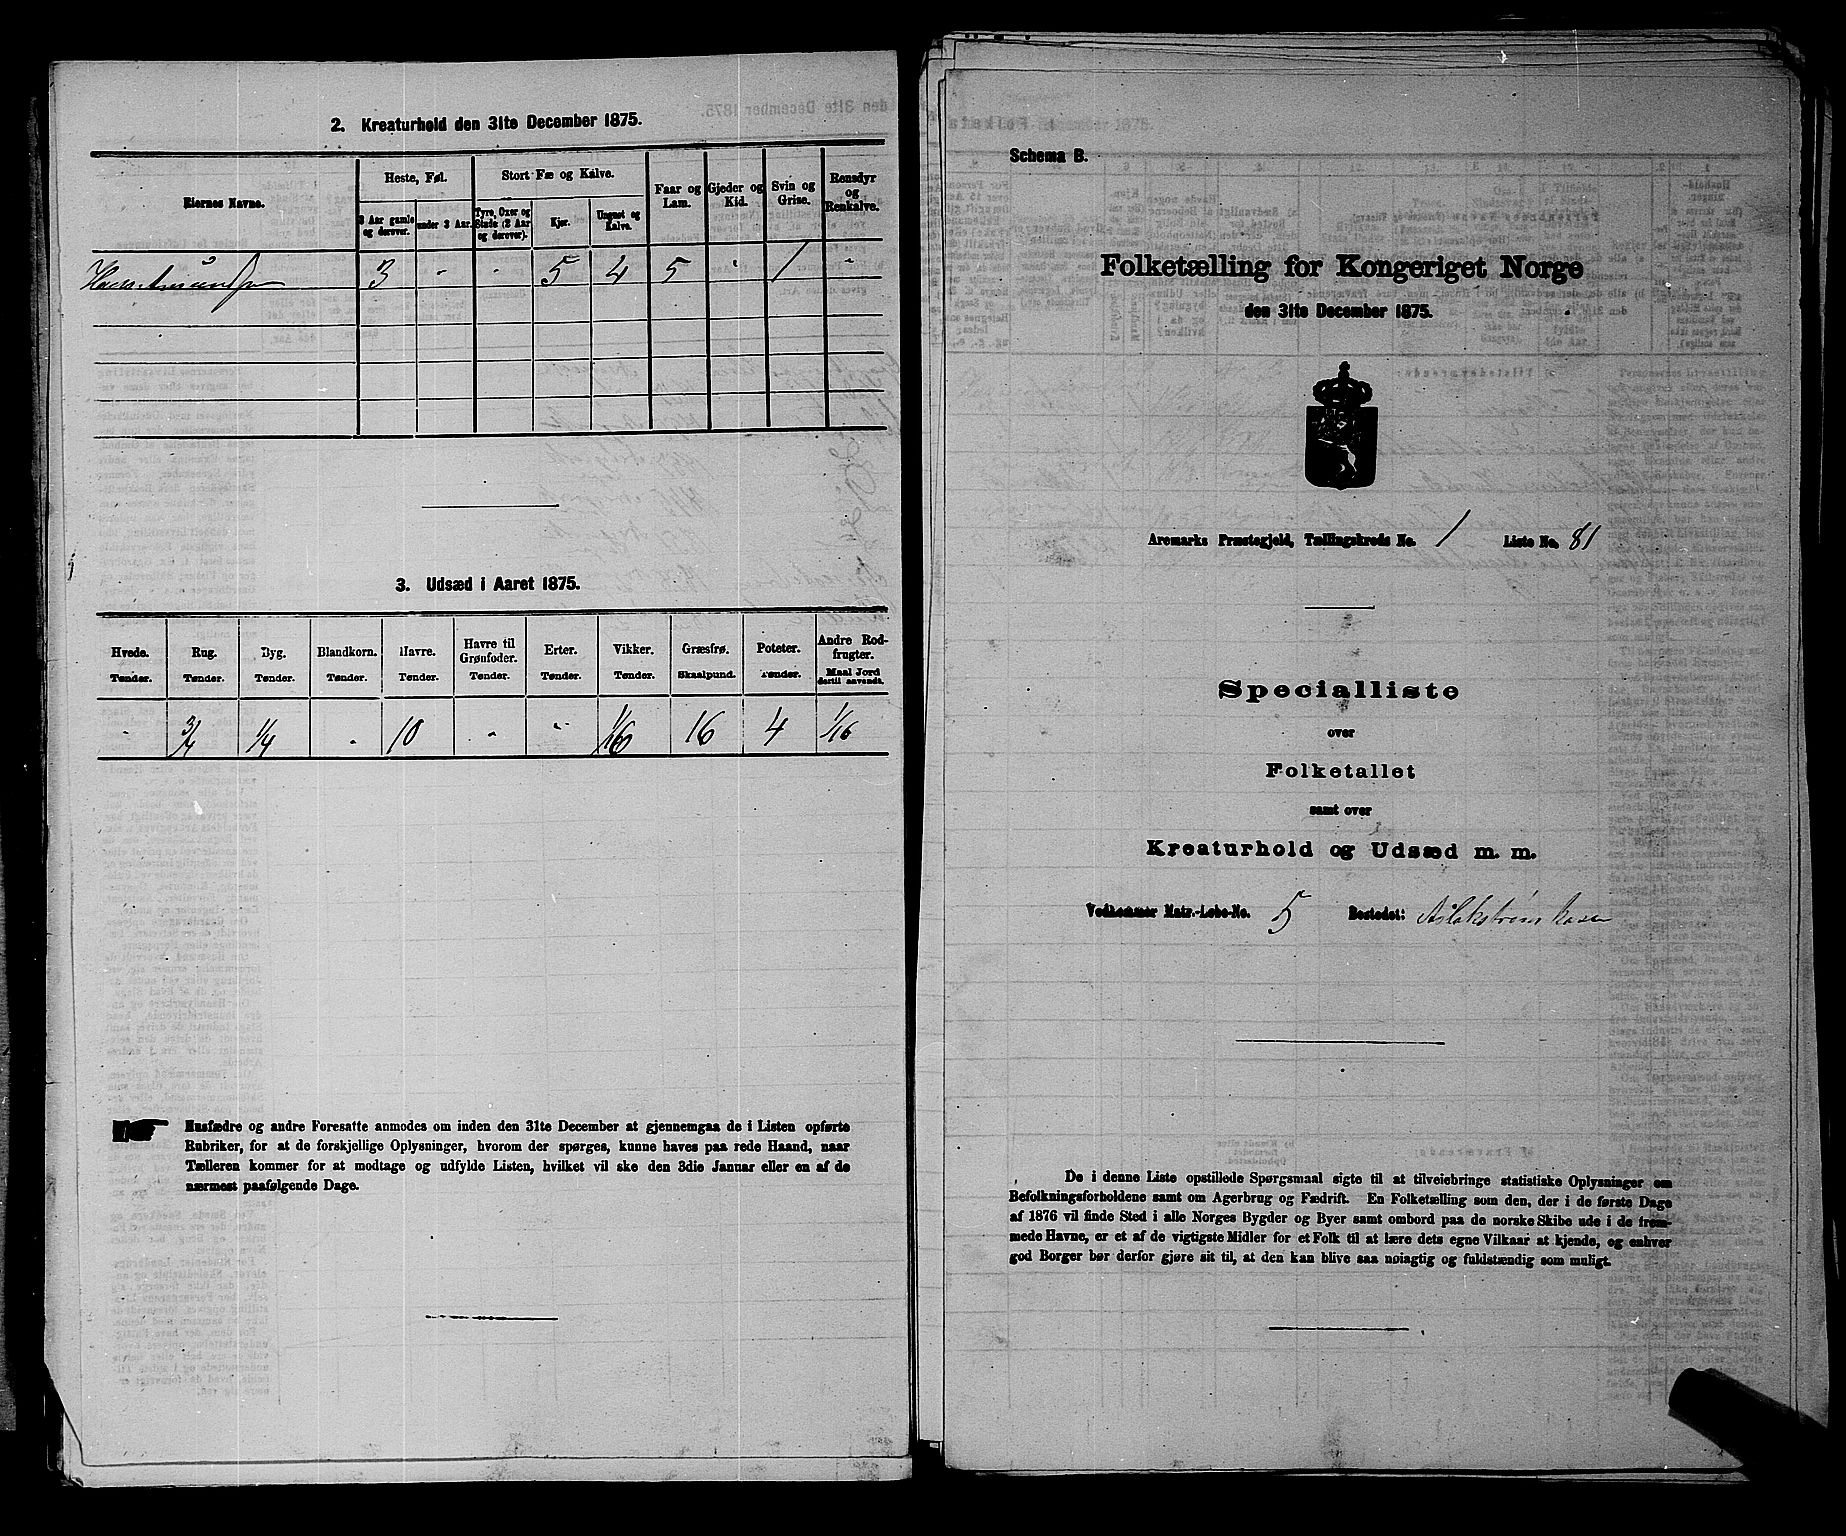 2. Kreaturhold den 31te December 1875.
Eiernes Navne.
Heste, Føl.
3 Aar gamle og derover.
under 3 Aar.
Stort Fæ og Kalve.
Tyre, Oxer og Stude (2 Aar og derover).
Kjør.
Ungnøt og Kalve.
Faar og Lam.
Gjeder og Kid.
Svin og Grise.
Rensdyr og Renkalve.
3 - - 5 4 5 - 1 -
3. Udsæd i Aaret 1875.
Hvede. Rug. Byg. Blandkorn. Havre. Havre til Grønfoder. Erter. Vikker. Græsfrø. Poteter. Andre Rodfrugter.
Tønder. Tønder. Tønder. Tønder. Tønder. Tønder. Tønder. Tønder. Skaalpund. Tønder. Maal Jord dertil anvendt.
- 3/4 1/4 - 10 - - 1/16 16 4 1/16
Husfædre og andre Foresatte anmodes om inden den 31te December at gjennemgaa de i Listen opførte
Rubriker, for at de forskjellige Oplysninger, hvorom der spørges, kunne haves paa rede Haand, naar
Tælleren kommer for at modtage og udfylde Listen, hvilket vil ske den 3die Januar eller en af de
nærmest paafølgende Dage.
Schema B.
Folketælling for Kongeriget Norge
den 31te December 1875.
Aremarks Præstegjeld, Tællingskreds No. 1 Liste No. 81
Specialliste
over
Folketallet
samt over
Kreaturhold og Udsæd m. m.
Vedkommer Matr.-Løbe-No. 5 Bostedet: Aslakstrøm
De i denne Liste opstillede Spørgsmaal sigte til at tilveiebringe statistiske Oplysninger om
Befolkningsforholdene samt om Agerbrug og Fædrift. En Folketælling som den, der i de første Dage
af 1876 vil finde Sted i alle Norges Bygder og Byer samt ombord paa de norske Skibe ude i de frem-
mede Havne, er et af de vigtigste Midler for et Folk til at lære dets egne Vilkaar at kjende, og enhver
god Borger bør derfor gjøre sit til, at den kan blive saa nøiagtig og fuldstændig som muligt.